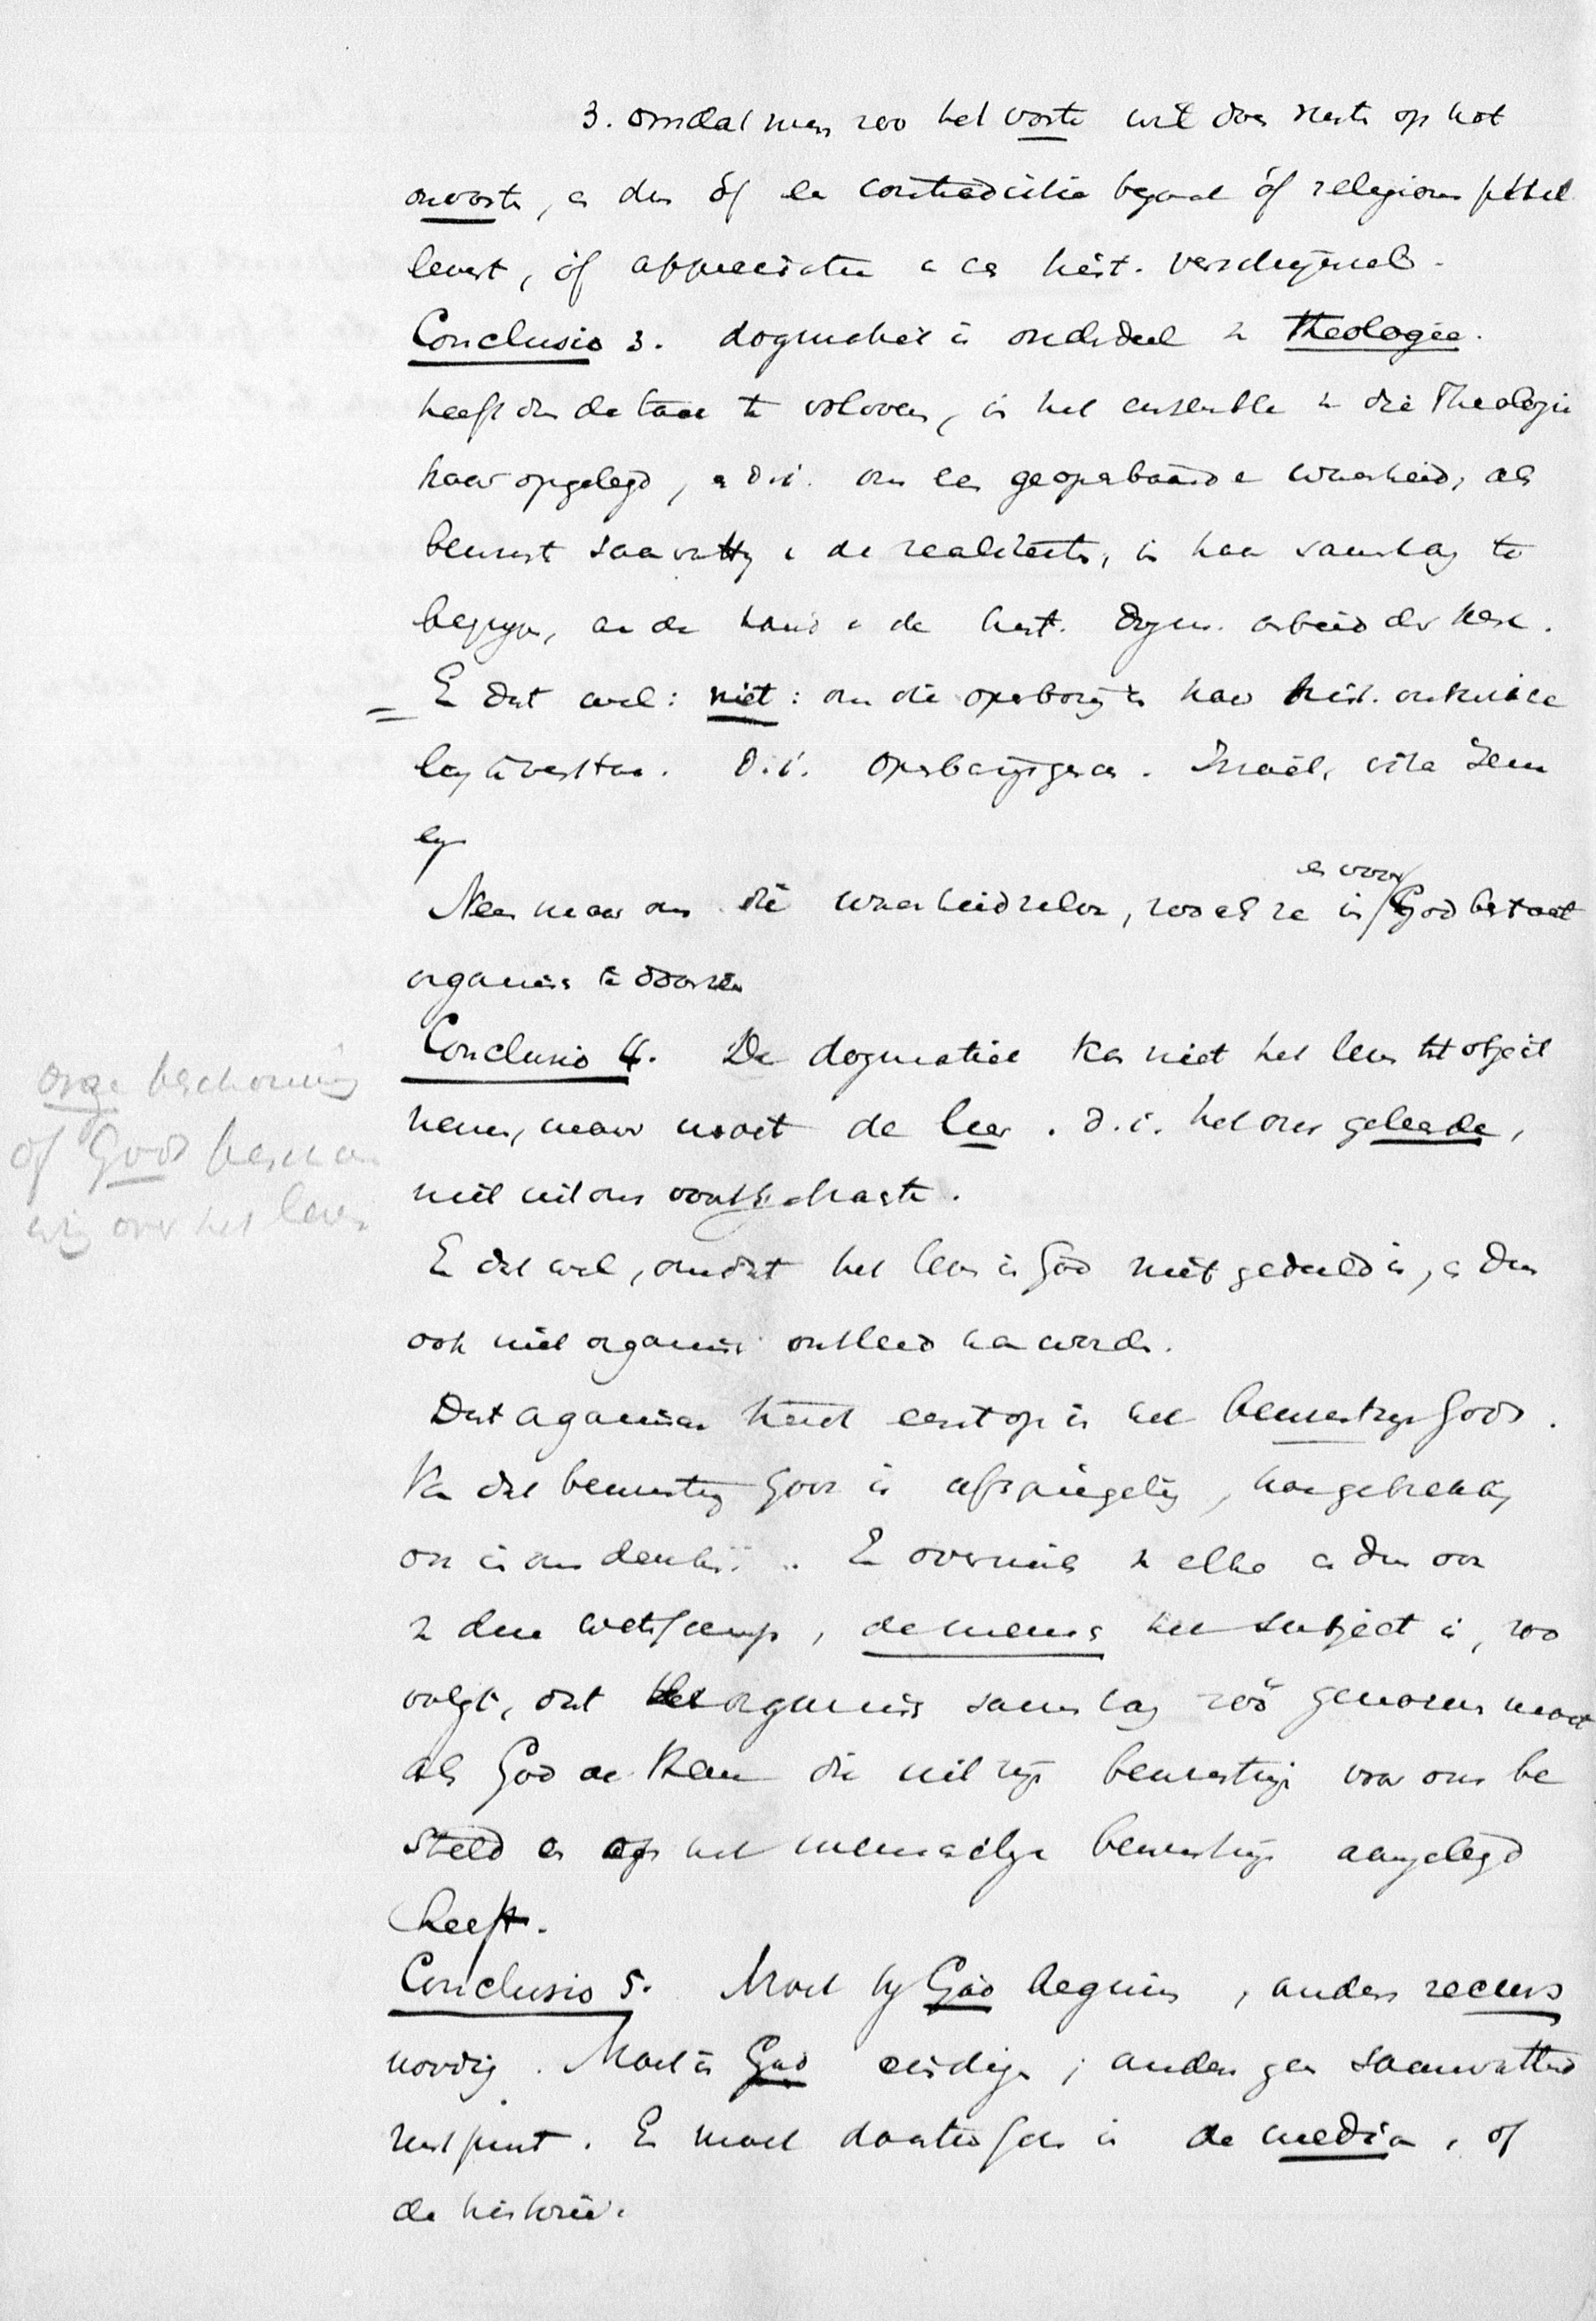 3. omdat men zoo het vaste wil doen rusten op het
onvaste, en dus óf een contradictie begaat óf religieus
levert, óf appreciatie v een hist. verschijnsel.
Conclusio 3. dogmatiek is onderdeel v Theologie.
heeft dus de taak te voldoen, in het ensemble v die Theologie
haar opgelegd, en d.i. om een geopenbaarde waarheid, als
bewust saamvatting v de realiteiten, in haar samenhang te
begrijpen, aan de hand v de hist. dogm. arbeid der kerk.
En dat wel: niet: om die openbaring in haar hist. ontwikke
ling te verstaan. D.i. openbaringsgesch. Israël, vita Jesu
Neen maar om die waarheid zelve, zooals ze in en voor God bestaat
organisch te doorzien
Conclusio 4. De dogmatiek kan niet het leven tot object
nemen, maar nooit de leer. d.i. het ons geleerde,
niet uit ons voortgebrachte.
En dat wel, omdat het leven in God niet gedeeld is, en dus
ook niet organisch ontleed kan worden.
Dat organisme treedt eerst op in het bewustzijn Gods.
Van dat bewustzijn Gods is afspiegeling,
ons in ons denken. En overmits v elke en dus ook
v deze wetenschap, de mensch het subject is, zoo
volgt, dat het organisch samenhang zóó genomen moet
als God de Heer die uit zijn bewustzijn voor ons be
steld en op het menschelijk bewustzijn aangelegd
heeft.
Conclusio 5. Moet bij God beginnen, anders recurs
noodig. Moet in God eindigen; anders geen saamvattend
rustpunt. En moet daartusschen in de media, of
de historie.
onze beschouwing
of Gods beschou
wing over het leven